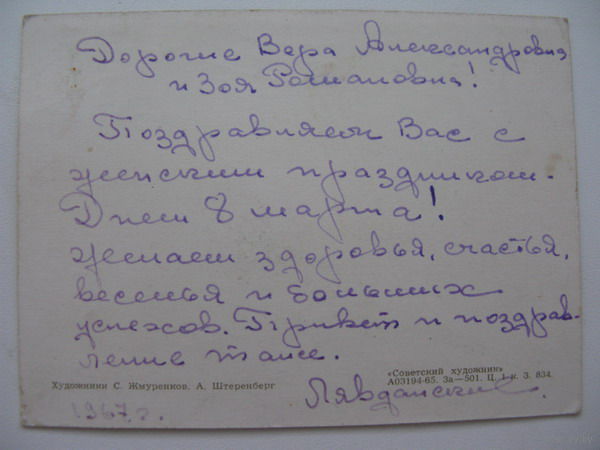 Дорогие Вера Александровна
и Зоя Романовна!
Поздравляем Вас с
женским праздником.
Днем 8 марта!
Желаем здоровья, счастья,
веселья и больших
успехов. Привет и поздрав-
ление Тане.
Художники С. Жмуренков. А. Штеренберг
«Советский художник»
А03194-65. Зак—501. Ц. 1 к. З. 834.
Лявданские.
1967 г.